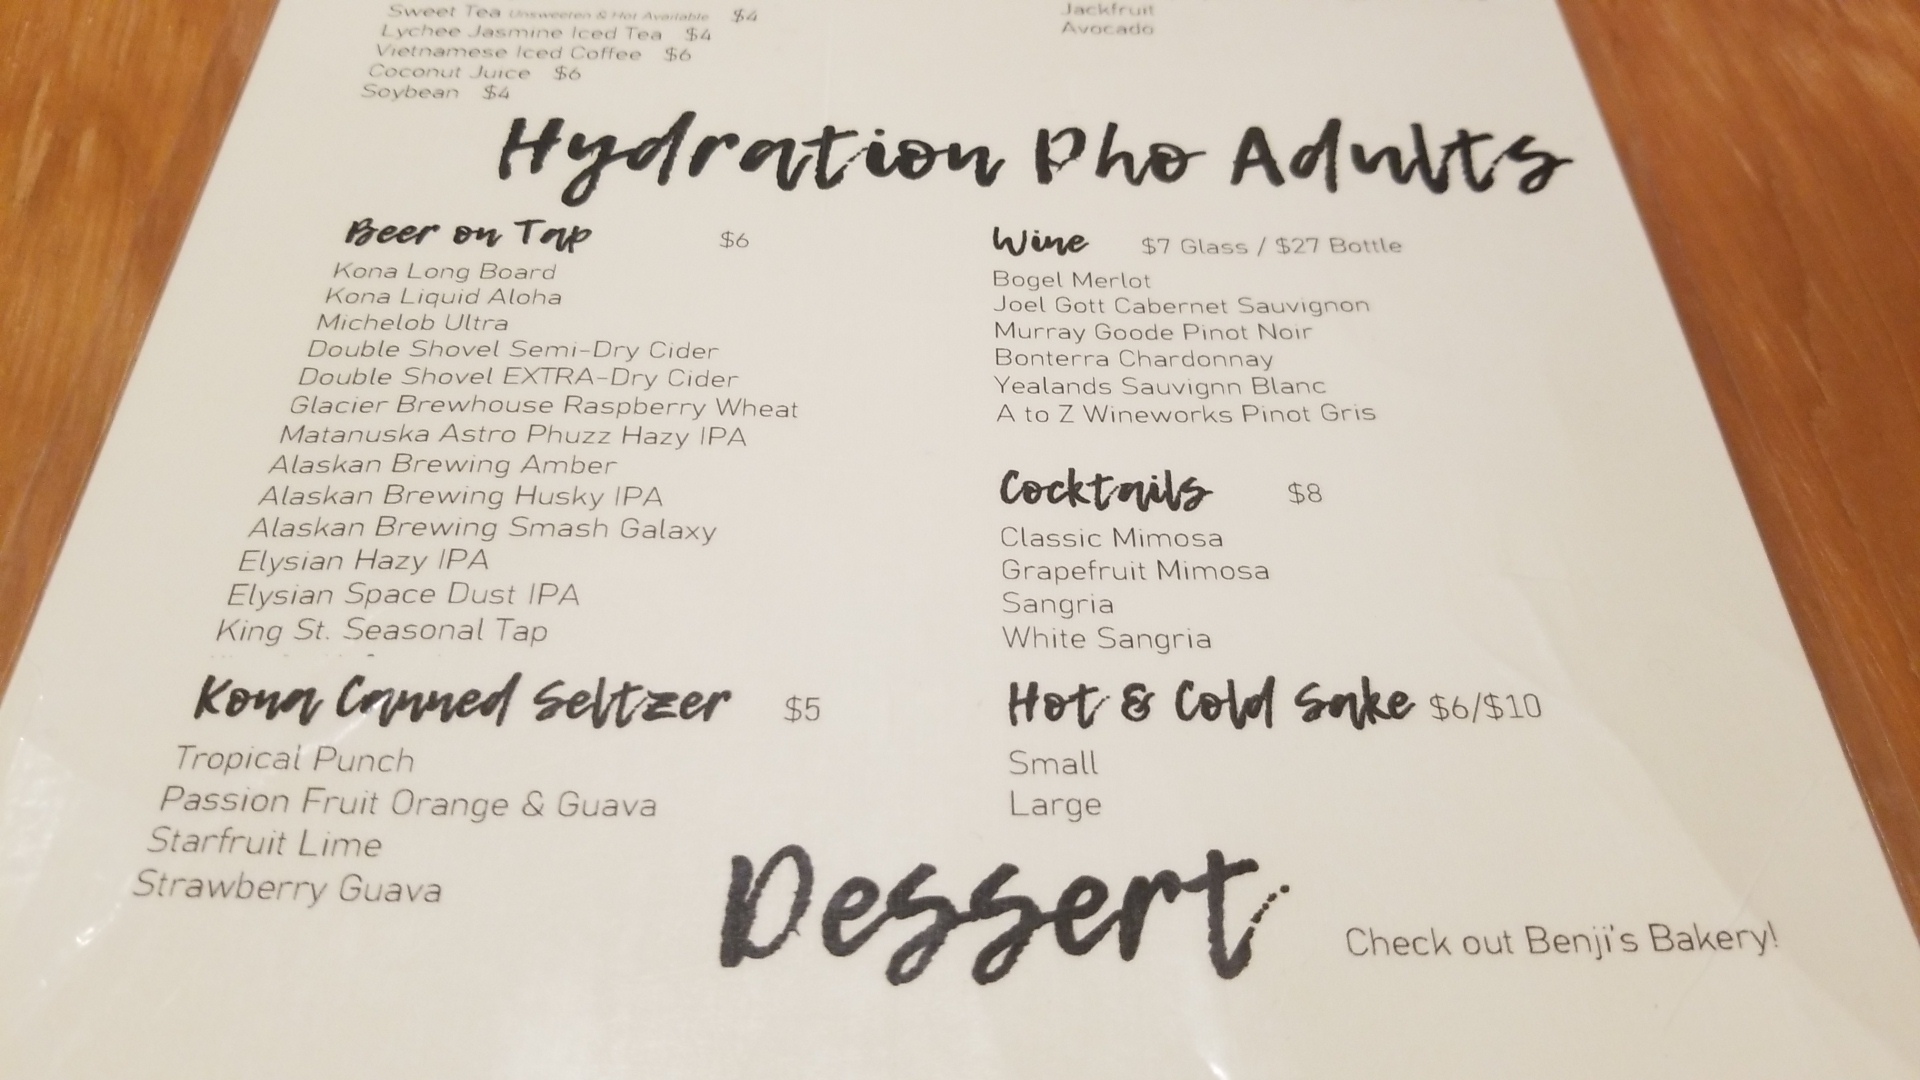 Sweet Tea Unsweeten & Hot Available $4
Lychee Jasmine Iced Tea $4
Vietnamese Iced Coffee $6
Coconut Juice $6
Soybean $4
Jackfruit
Avocado
Hydration Pho Adults
Beer on Tap $6
Kona Long Board
Kona Liquid Aloha
Michelob Ultra
Double Shovel Semi-Dry Cider
Double Shovel EXTRA-Dry Cider
Glacier Brewhouse Raspberry Wheat
Matanuska Astro Phuzz Hazy IPA
Alaskan Brewing Amber
Alaskan Brewing Husky IPA
Alaskan Brewing Smash Galaxy
Elysian Hazy IPA
Elysian Space Dust IPA
King St. Seasonal Tap
Kona Canned Seltzer $5
Tropical Punch
Passion Fruit Orange & Guava
Starfruit Lime
Strawberry Guava
Wine $7 Glass / $27 Bottle
Bogel Merlot
Joel Gott Cabernet Sauvignon
Murray Goode Pinot Noir
Bonterra Chardonnay
Yealands Sauvignn Blanc
A to Z Wineworks Pinot Gris
Cocktails $8
Classic Mimosa
Grapefruit Mimosa
Sangria
White Sangria
Hot & Cold Sake $6/$10
Small
Large
Dessert
Check out Benji's Bakery!